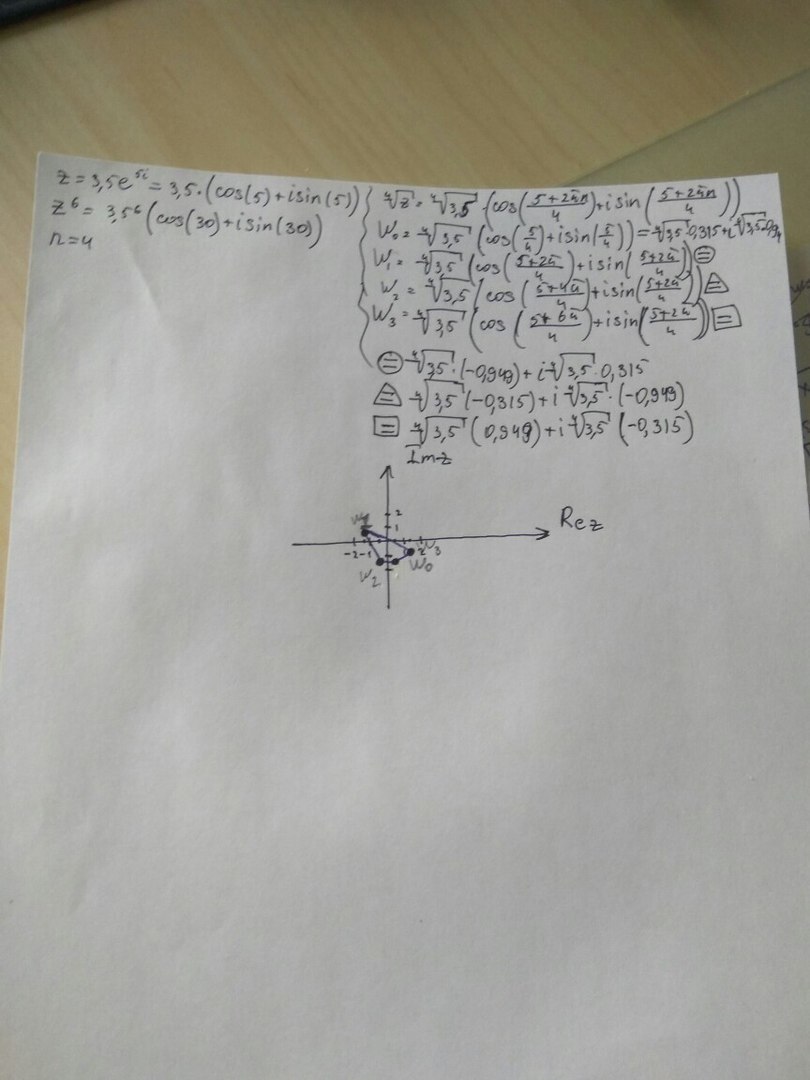 z = 3,5e^{5i} = 3,5·(cos(5)+isin(5))
z⁶ = 3,5⁶(cos(30)+isin(30))
n=4
⁴√z = ⁴√3,5 (cos(5+2πn/4)+isin(5+2πn/4))
W₀ = ⁴√3,5 (cos(5/4)+isin(5/4)) = ⁴√3,5·0,315+i⁴√3,5·0,94
W₁ = ⁴√3,5 (cos(5+2π/4)+isin(5+2π/4)) ⊜
W₂ = ⁴√3,5 (cos(5+4π/4)+isin(5+2π/4))
W₃ = ⁴√3,5 (cos(5+6π/4)+isin(5+2π/4))
⊜ ⁴√3,5·(-0,949)+i⁴√3,5·0,315
⁴√3,5 (-0,315)+i⁴√3,5·(-0,949)
⁴√3,5 (0,949)+i⁴√3,5 (-0,315)
Im z
2
1
Re z
-2 -1
2
W₃
W₂
W₀